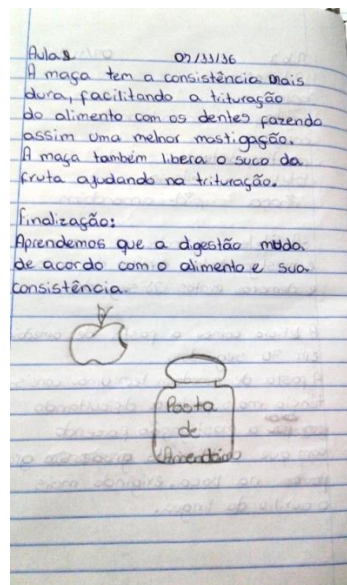 Aula 8 07/11/16
A maça tem a consistência mais
dura, facilitando a trituração
do alimento com os dentes fazendo
assim uma melhor mastigação.
A maça também libera o suco da
fruta ajudando na trituração.
Finalização:
Aprendemos que a digestão muda
de acordo com o alimento e sua
consistência.
Pasta
de
Amendoim